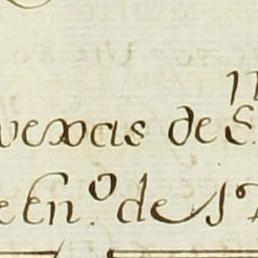 vexas de S.
e En.º de 17